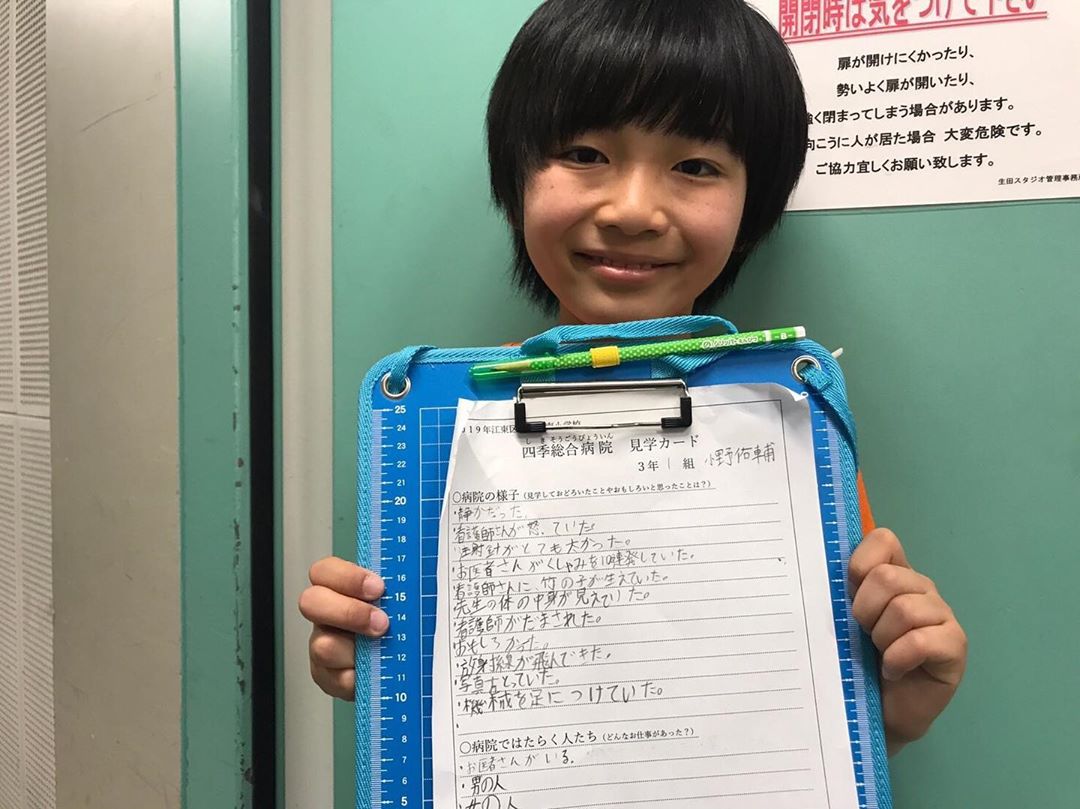 開閉時は気をつけて下さい
扉が開けにくかったり、
勢いよく扉が開いたり、
強く閉まってしまう場合があります。
向こうに人が居た場合 大変危険です。
ご協力宜しくお願い致します。
生田スタジオ管理事務
B
19年江東区
しきそうごうびょういん
四季総合病院 見学カード
3年 1 組 小野 輔
○病院の様子(見学しておどろいたことやおもしろいと思ったことは?)
・静かだった。
・看護師さんが怒っていた。
・注射針がとても太かった。
・お医者さんがくしゃみを10連発していた。
・看護師さんに、竹の子が生えていた。
・先生の体の中身が見えていた。
・看護師がだまされた。
・おもしろかった。
・放射線が飛んできた。
・写真をとっていた。
・機械を足につけていた。
・
○病院ではたらく人たち(どんなお仕事があった?)
・お医者さんがいる。
・男の人
・女の人
25
24
23
22
21
20
19
18
17
16
15
14
13
12
11
10
9
8
7
6
5